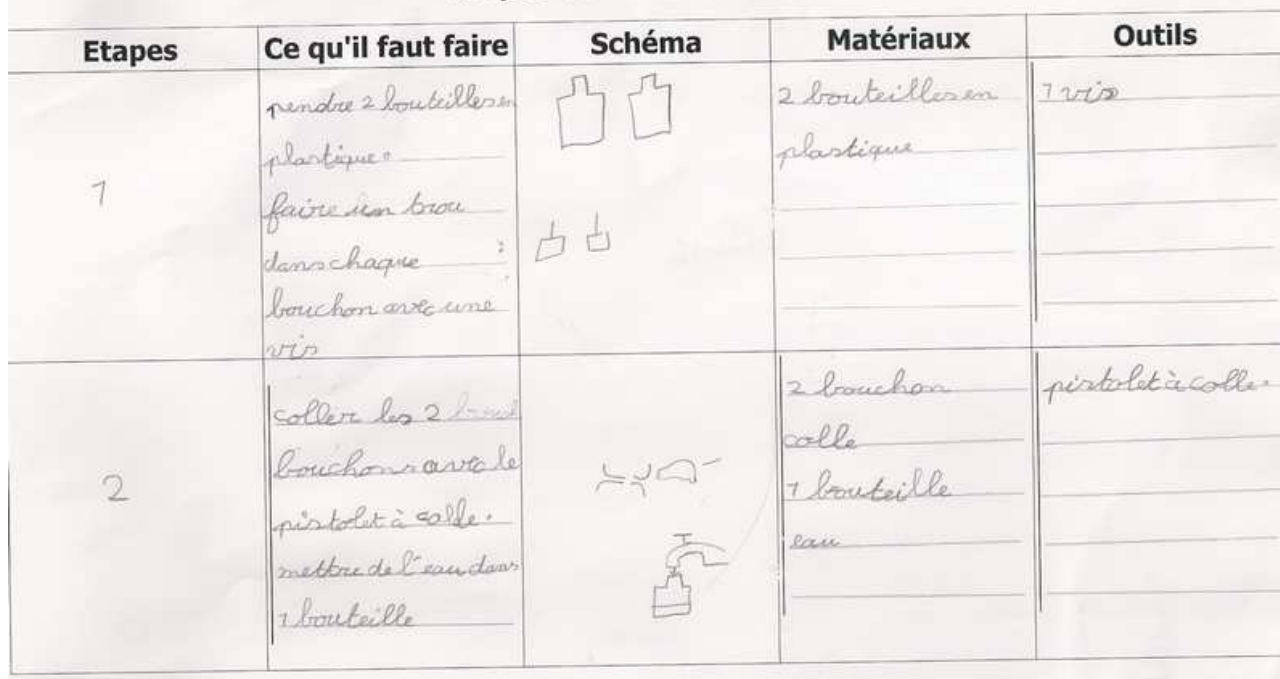 Etapes
Ce qu'il faut faire
Schéma
Matériaux
Outils
1
pendre 2 bouteilles en
plastique.
faire un trou
dans chaque
bouchon avec une
vis
2 bouteilles en
plastique
1 vis
2
coller les 2
bouchons avec le
pistolet à colle.
mettre de l'eau dans
1 bouteille
2 bouchon
colle
1 bouteille
eau
pistolet à colle.